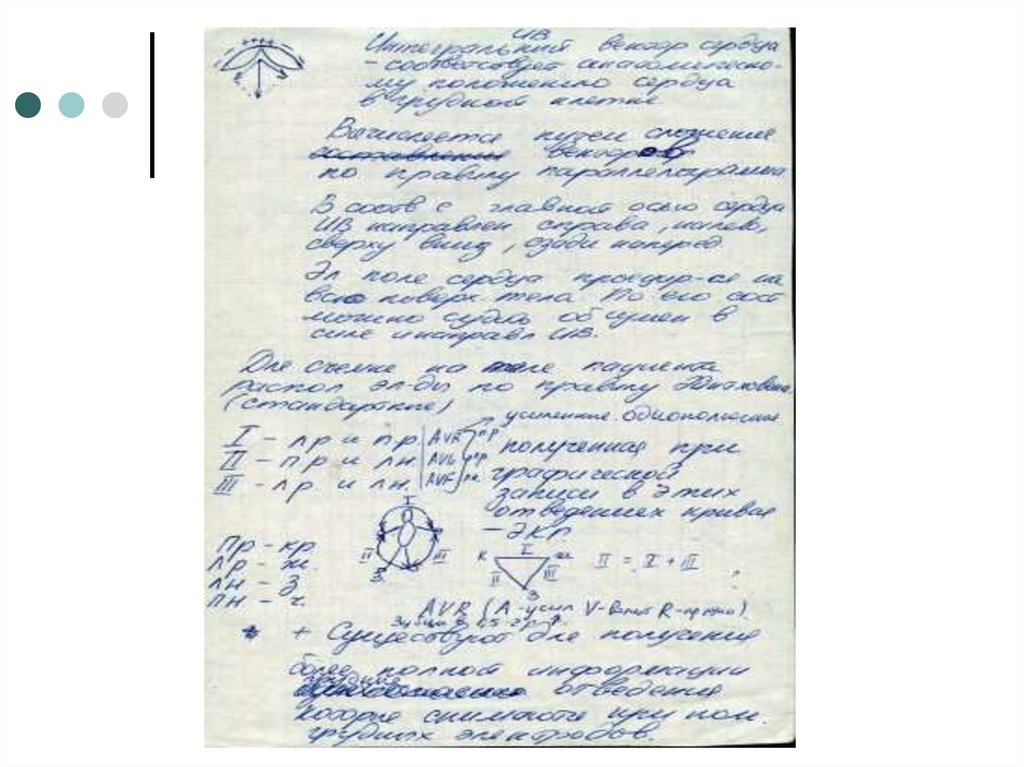 ИВ
Интегральный вектор сердца
– соответствует анатомическо-
му положению сердца
в грудной клетке
Вычисляется путем сложения
векторов
по правилу параллелограмма
В соотв с главной осью сердца
ИВ направлен справа, налево,
сверху вниз, сзади наперед.
Эл поле сердца проецир-ся на
всю поверх тела. По его сост
можно судить об измен в
силе и направл ИВ.
Для съемки на теле пациента
распол эл-ды по правилу Эйнтховена
(стандартные)
усиленные однополюсные
I – лр и пр AVR пр
II – пр и лн AVL лр
III – лр и лн. AVF лн
полученная при
графической
записи в этих
отведениях кривая
– ЭКГ
I
II III
З
Пр – кр
Лр – ж.
лн – З
пн – ч.
К I ж
II III
З
II = I + III
AVR (A-усил V- R-право)
в 1,5
+ Существуют для получения
более полной информации
грудные
отведения
которые снимаются при пом.
грудных электродов.